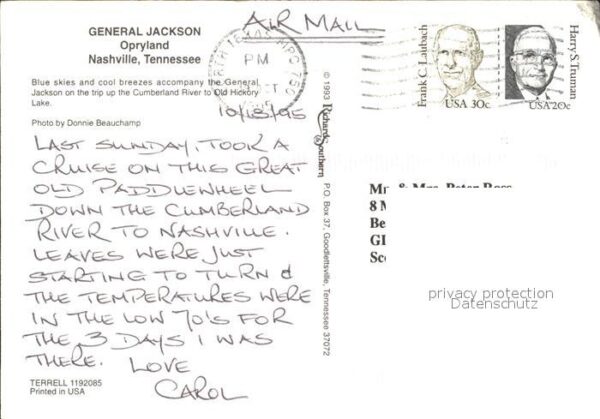 GENERAL JACKSON
Opryland
Nashville, Tennessee
Blue skies and cool breezes accompany the General
Jackson on the trip up the Cumberland River to Old Hickory
Lake.
Photo by Donnie Beauchamp
AIR MAIL
PM
10/18/95
LAST SUNDAY, TOOK A
CRUISE ON THIS GREAT
OLD PADDLEWHEEL
DOWN THE CUMBERLAND
RIVER TO NASHVILLE.
LEAVES WERE JUST
STARTING TO TURN &
THE TEMPERATURES WERE
IN THE LOW 70'S FOR
THE 3 DAYS I WAS
THERE. LOVE
CAROL
TERRELL 1192085
Printed in USA
© 1993 Richards & Southern
P.O. Box 37, Goodlettsville, Tennessee 37072
Frank C. Laubach
USA 30c
Harry S. Truman
USA 20c
8
Be
privacy protection
Datenschutz